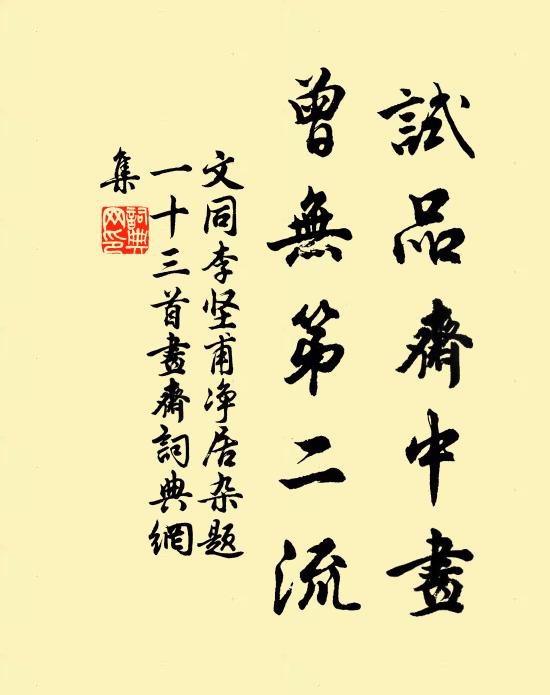 試品齋中畫
曾無第二流
文同李坚甫净居杂题
一十三首畫齋詞典網
集
詞典网印